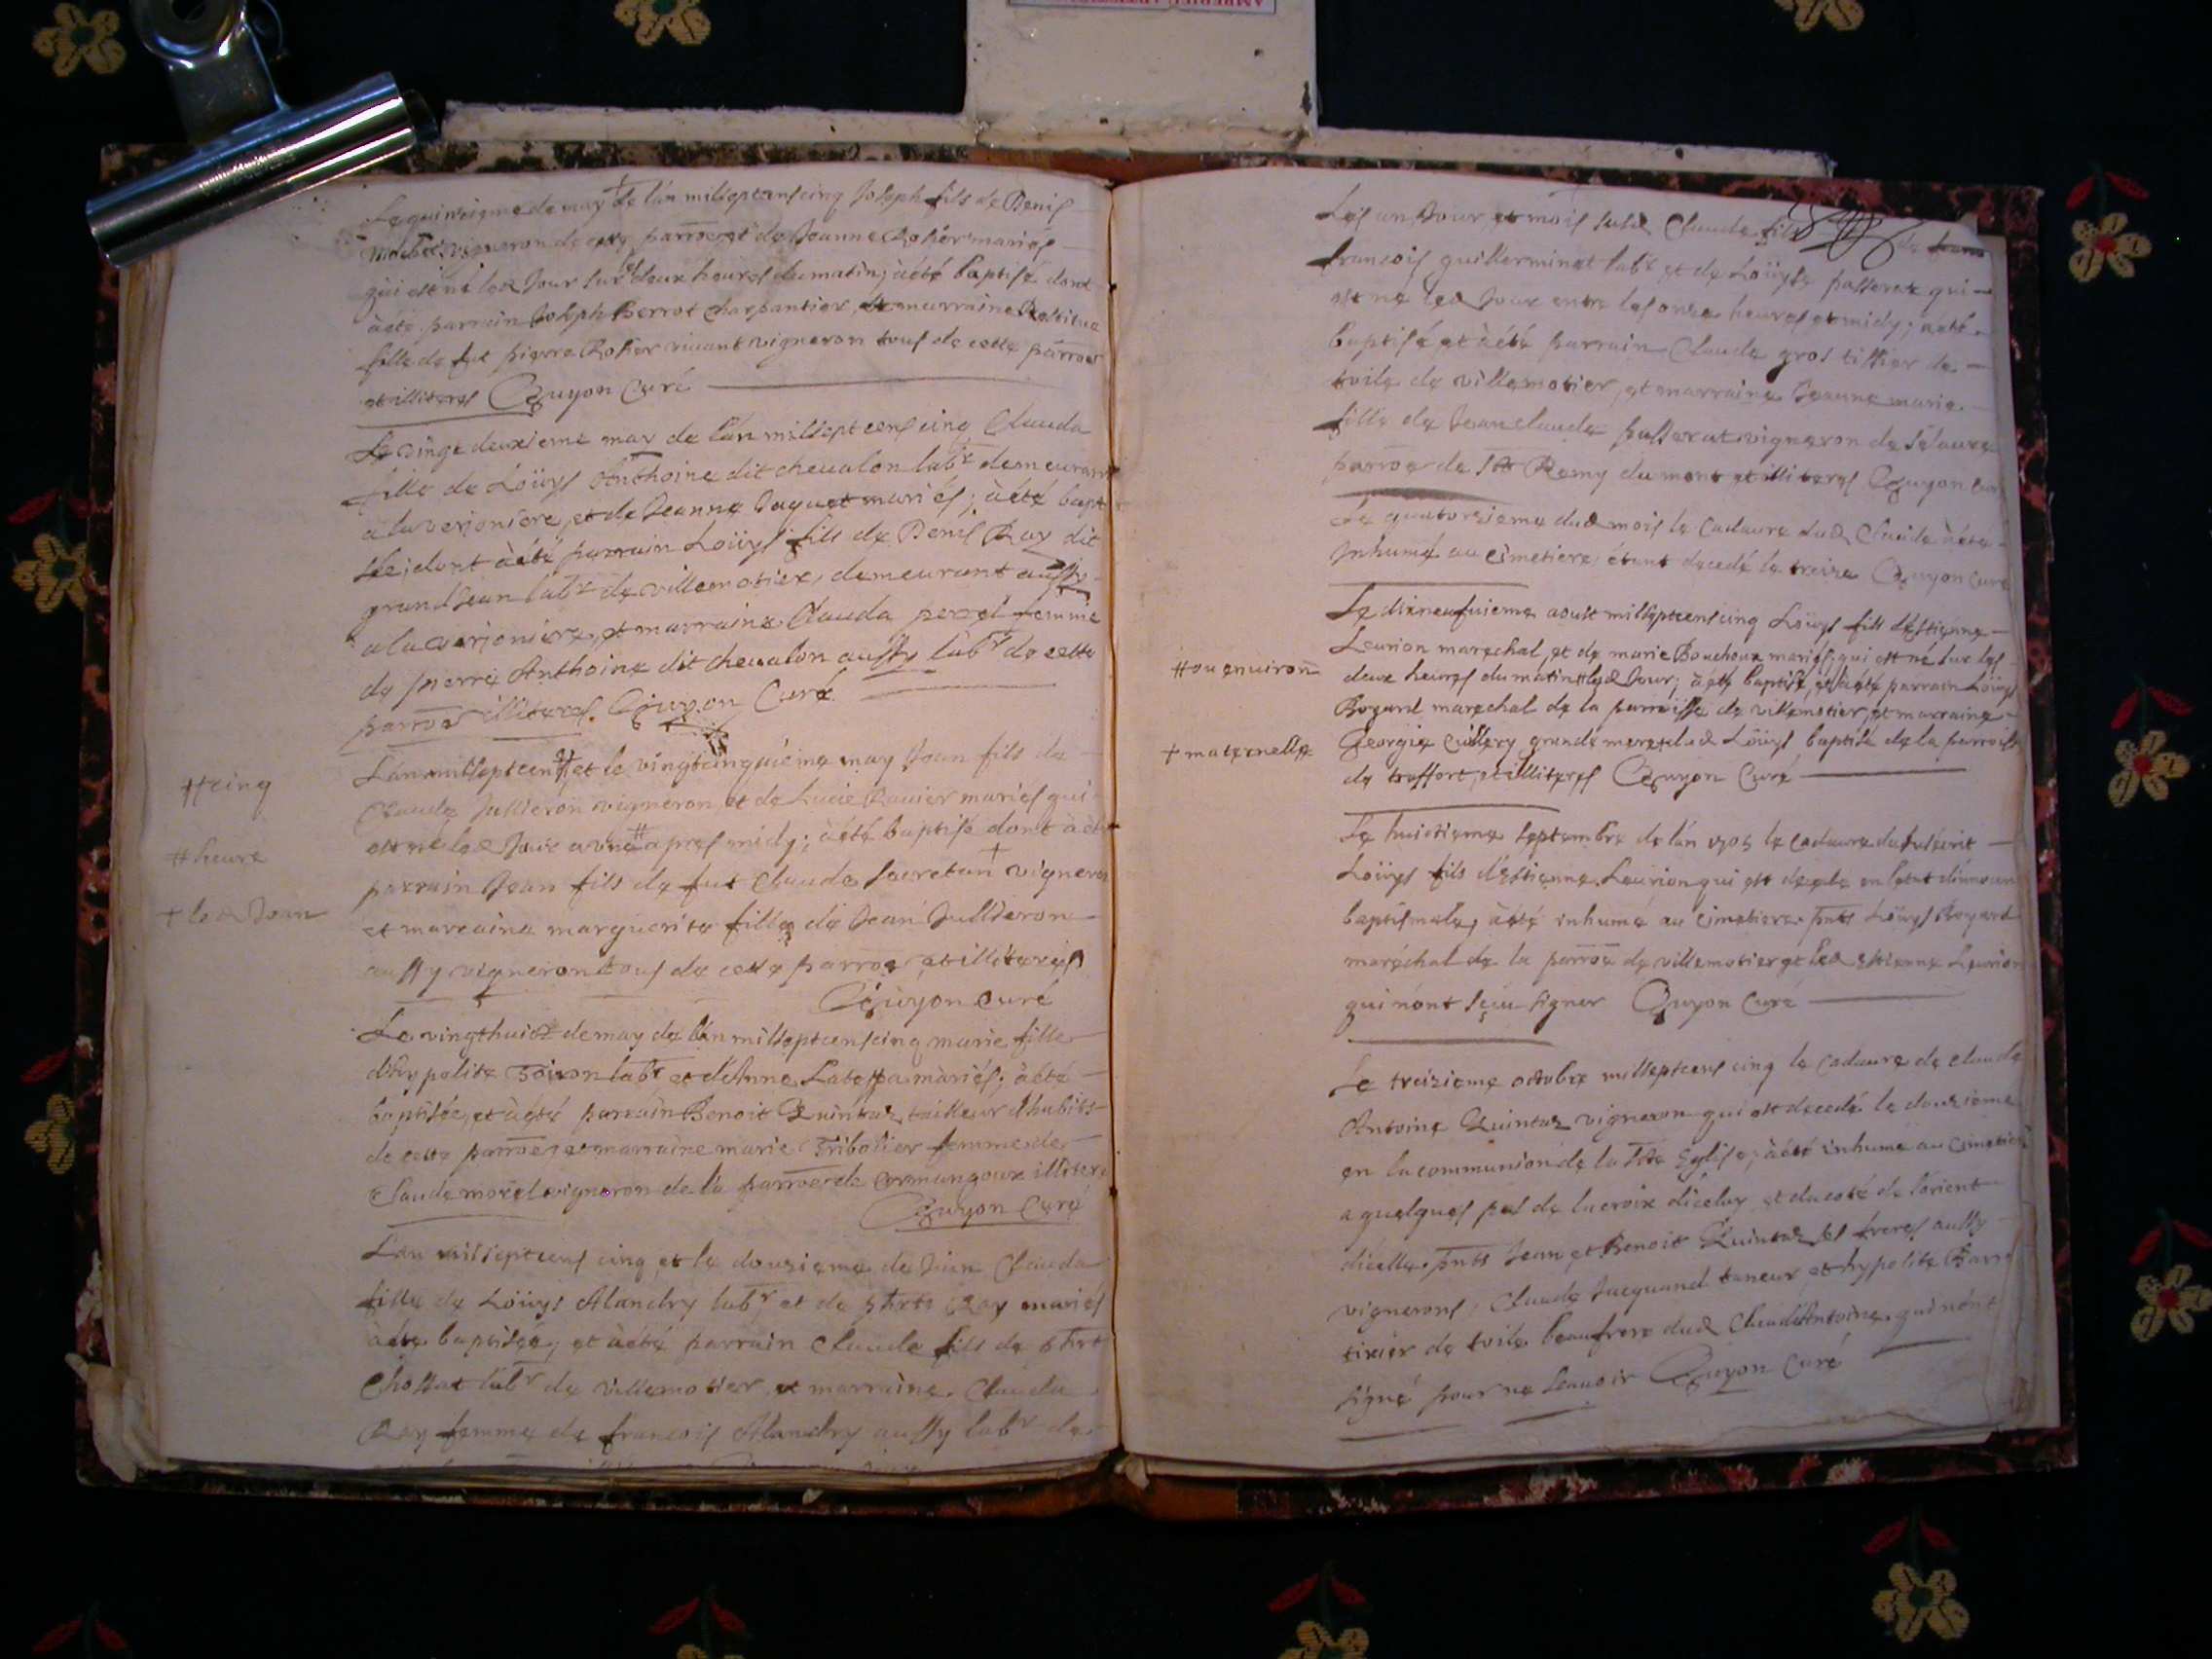 Le quinzieme de may de l'an mil sept cens cinq Joseph fils de Denis
vigneron de cette parroe et de Jeanne Rosier mariés
qui est né led Jour sur les deux heures du matin; à été baptisé dont
à été parrain Joseph Perrot charpantier, et marraine
fille de fut pierre Rosier vivant vigneron tous de cette parroe
et illiteres Guyon Curé
Le vingt deuxieme may de l'an mil sept cens cinq Clauda
fille de Loüys Anthoine dit chevalon labr demeurant
a la verjoniere, et de Jeanne Jaquet mariés; à été bapti
sée; dont à été parrain Loüys fils de Denis Ray dit
grand Jean labr de villemotier, demeurant aussy
a la verjoniere, et marraine Clauda femme
de pierre Anthoine dit chevalon aussy labr de cette
parroe illiteres. Guyon Curé
L'an mil sept cens # et le vingt cinquieme may Jean fils de
#cinq
Claude Jullieron vigneron et de Lucie Ravier mariés qui
est né led Jour a une # apres midy; à été baptisé dont à été
#heure
parrain Jean fils de fut Claude Secretan + vigneron
+ led Jean
et marraine marguerite fille de Jean Jullieron
aussy vigneron tous de cette parroe et illiteres
Guyon curé
Le vingt huict de may de l'an mil sept cens cinq marie fille
d'hypolite labr et d'Anne mariés; à été
baptisée, et à été parrain Benoit Quintaz tailleur d'habits
de cette parroe, et marraine marie Tribolier femme de
Claude morel vigneron de la parroe de cormangoux illiteres
Guyon Curé
L'an mil sept cens cinq et le douzieme de Juin Clauda
fille de Loüys Alandry labr et de phrte Ray mariés
à été baptisée; et à été parrain Claude fils de phrt
Chossat labr de villemotier et marraine Clauda
Ray femme de francois Alandry aussy labr de
Les an, Jour, et mois susd Claude fils de
francois guillerminet labr et de Loüyse passerat qui
est né led Jour entre les onze heures et midy; à été
baptisé, et à été parrain Claude gros tissier de
toile de villemotier, et marraine Jeanne marie
fille de Jean claude passerat vigneron de
parroe de St Remy du mont et illiteres Guyon Curé
Le quatorzieme dud mois le cadavre dud Claude à été
Inhumé au cimetiere; étant decedé le treize Guyon curé
Le dixneufuieme aoust mil sept cens cinq Loüys fils d'estienne
Leurion marechal, et de marie Bouchoux mariés; qui est né sur les
deux heures du matin # led Jour; à été baptisé, et à été parrain Loüys
#ou environ
Bogard marechal de la parroisse de villemotier, et marraine
Georgie Cuillery grande mere + dud Loüys baptisé de la parroisse
+ maternelle
de treffort, et illiteres Guyon Curé
Le huictieme septembre de l'an 1705 le cadavre du susécrit
Loüys fils d'estienne Leurion qui est decede en l'etat d'innocence
baptismale, à été inhumé au cimetiere. pnts Loüys Bogard
maréchal de la parroe de villemotier et led estienne Leurion
qui n'ont sçeu signer Guyon Curé
Le treizieme octobre mil sept cens cinq le cadavre de claude
Antoine Quintaz vigneron qui est decedé le douzieme
en la communion de la Ste Eglise; à été inhumé au cimetiere
a quelques pas de la croix d'iceluy et du coté de l'orient
d'icelle. pnts Jean et Benoit Quintaz ses freres aussy
vignerons, Claude Jacquand taneur, et hypolite
tixier de toile beaufrere dud Claud'Antoine. qui n'ont
signé pour ne scavoir Guyon Curé